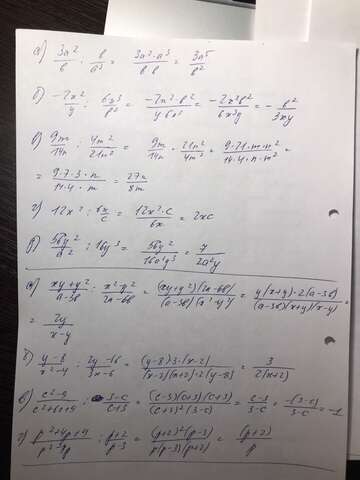 а) 3a²/b : b/a³ = 3a²·a³/b·b = 3a⁵/b²
б) -2x²/y : 6x³/b² = -2x²·b²/y·6x³ = -2x²b²/6x³y = -b²/3xy
в) 9m/14n : 4m²/21n² = 9m/14n · 21n²/4m² = 9·21·m·n²/14·4·n·m² =
= 9·7·3·n/14·4·m = 27n/8m
г) 12x² : 6x/c = 12x²·c/6x = 2xc
д) 56y²/a² : 16y³ = 56y²/16a²y³ = 7/2a²y
а) xy+y²/a-3b : x²-y²/2a-6b = (xy+y²)(2a-6b)/(a-3b)(x²-y²) = y(x+y)·2(a-3b)/(a-3b)(x+y)(x-y) =
= 2y/x-y
б) y-8/x²-4 : 2y-16/3x-6 = (y-8)3·(x-2)/(x-2)(x+2)·2(y-8) = 3/2(x+2)
в) c²-9/c²+6c+9 : 3-c/c+3 = (c-3)(c+3)(c+3)/(c+3)²(3-c) = c-3/3-c = -(3-c)/3-c = -1
г) p²+4p+4/p²-3p : p+2/p-3 = (p+2)²(p-3)/p(p-3)(p+2) = (p+2)/p